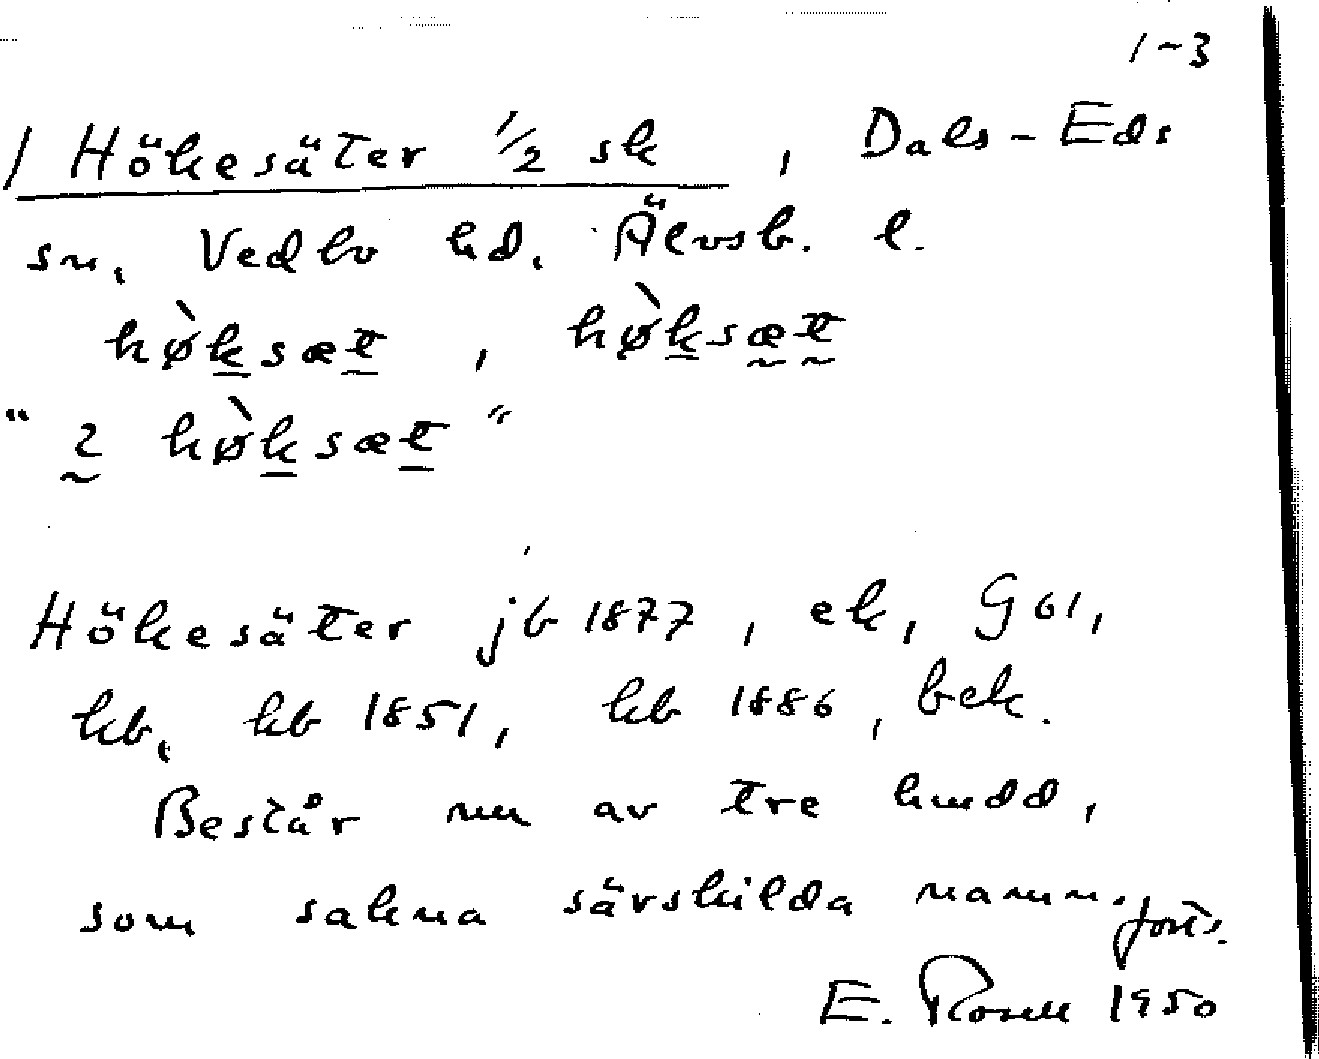 1-3
1 Hökesäter 1/2 sk, Dals-Eds
sn, Vedbo hd. Älvsb. l.
hø̀ksæt, hø̀ksæt
" 2 hø̀ksæt "
Hökesäter jb 1877, ek, GÖI,
kb, kb 1851, kb 1886, bek.
Består nu av tre hmdd,
som sakna särskilda namn. forts.
E. Rosell 1950